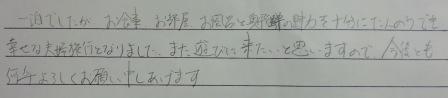 一泊でしたが お食事 お部屋 お風呂と奥飛騨の魅力を十分にたんのうでき
幸せな夫婦旅行となりました。また遊びに来たいと思いますので、今後とも
何卒よろしくお願い申しあげます